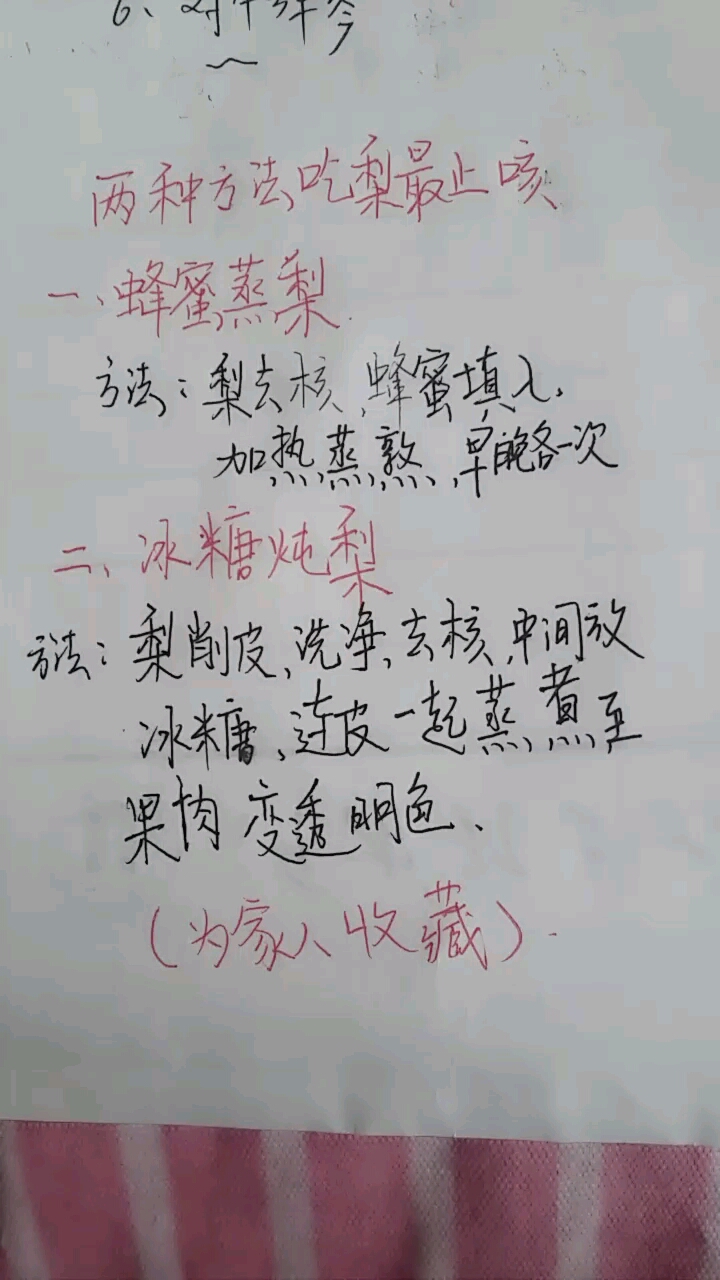 6、对
两种方法吃梨最止咳
一、蜂蜜蒸梨.
方法：梨去核，蜂蜜填入，
加热蒸熟，早晚各一次
二、冰糖炖梨
方法：梨削皮、洗净、去核，中间放
冰糖、连皮一起蒸煮至
果肉变透明色、
（为家人收藏）.